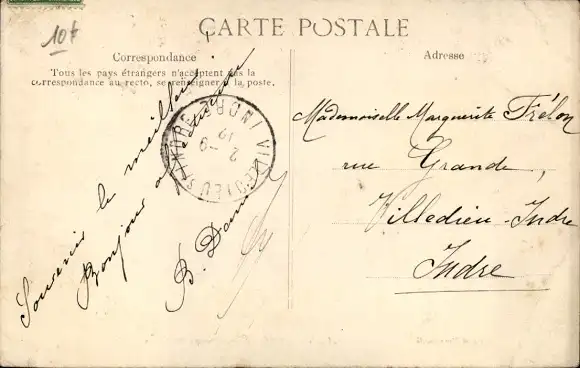 10f
CARTE POSTALE
Correspondance
Tous les pays étrangers n'acceptent pas la
correspondance au recto, se renseigner à la poste.
Adresse
Souvenir le meilleur
Bonjour
B.
VILLEDIEU S INDRE INDRE
2-9
19
Mademoiselle Marguerite Frélon
rue Grande,
Villedieu-Indre
Indre